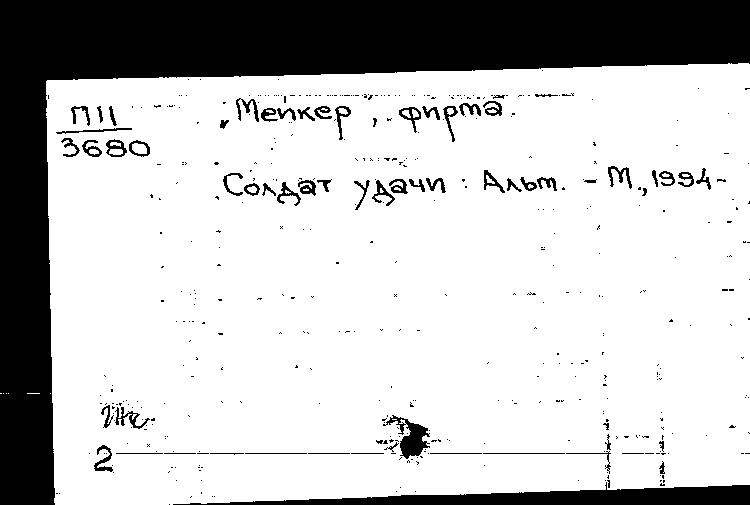 П11
3680
„Мейкер", фирма.
Солдат удачи : Альм. - М., 1994-
2